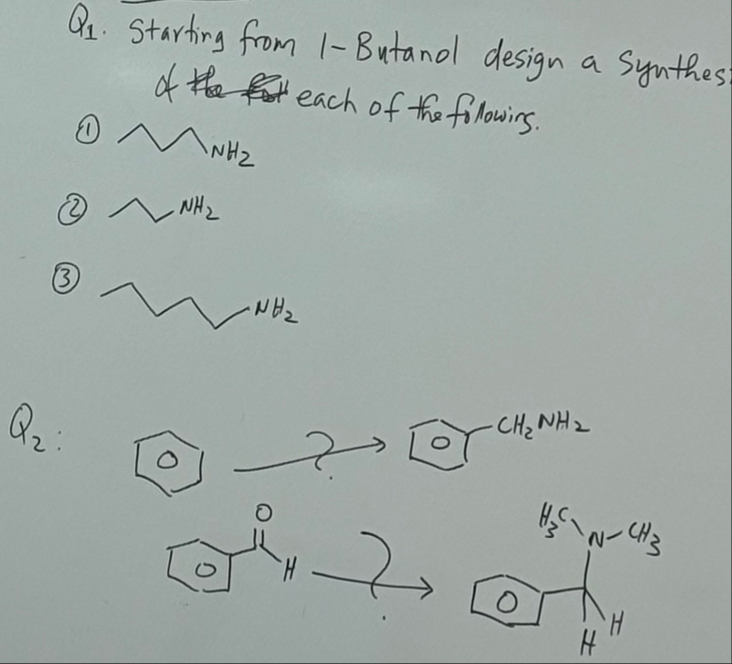 Q1. Starting from 1-Butanol design a Synthes
of the each of the following.
① NH2
② NH2
③ NH2
Q2: ? CH2NH2
O
H ? H3C N CH3
H
H